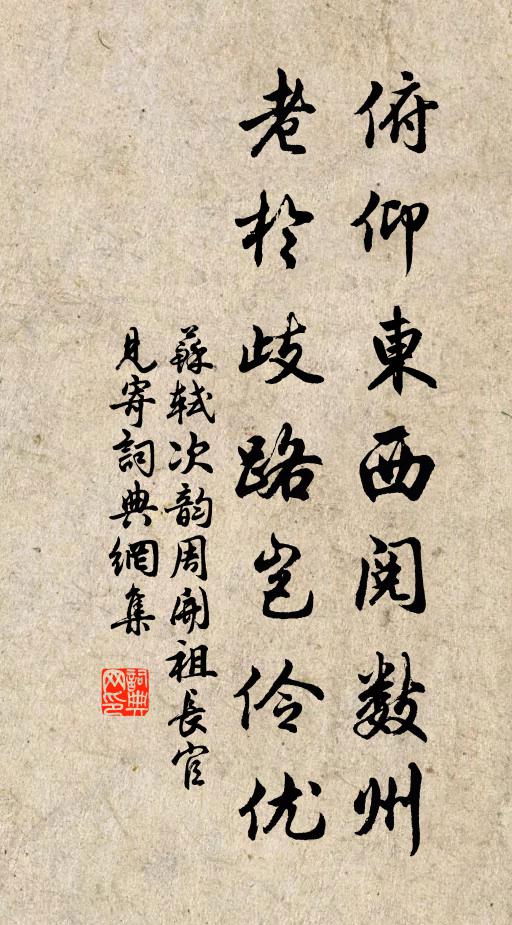 俯仰東西閱數州
老於歧路豈伶优
蘇軾次韵周開祖長官
見寄詞典網集
詞典网印